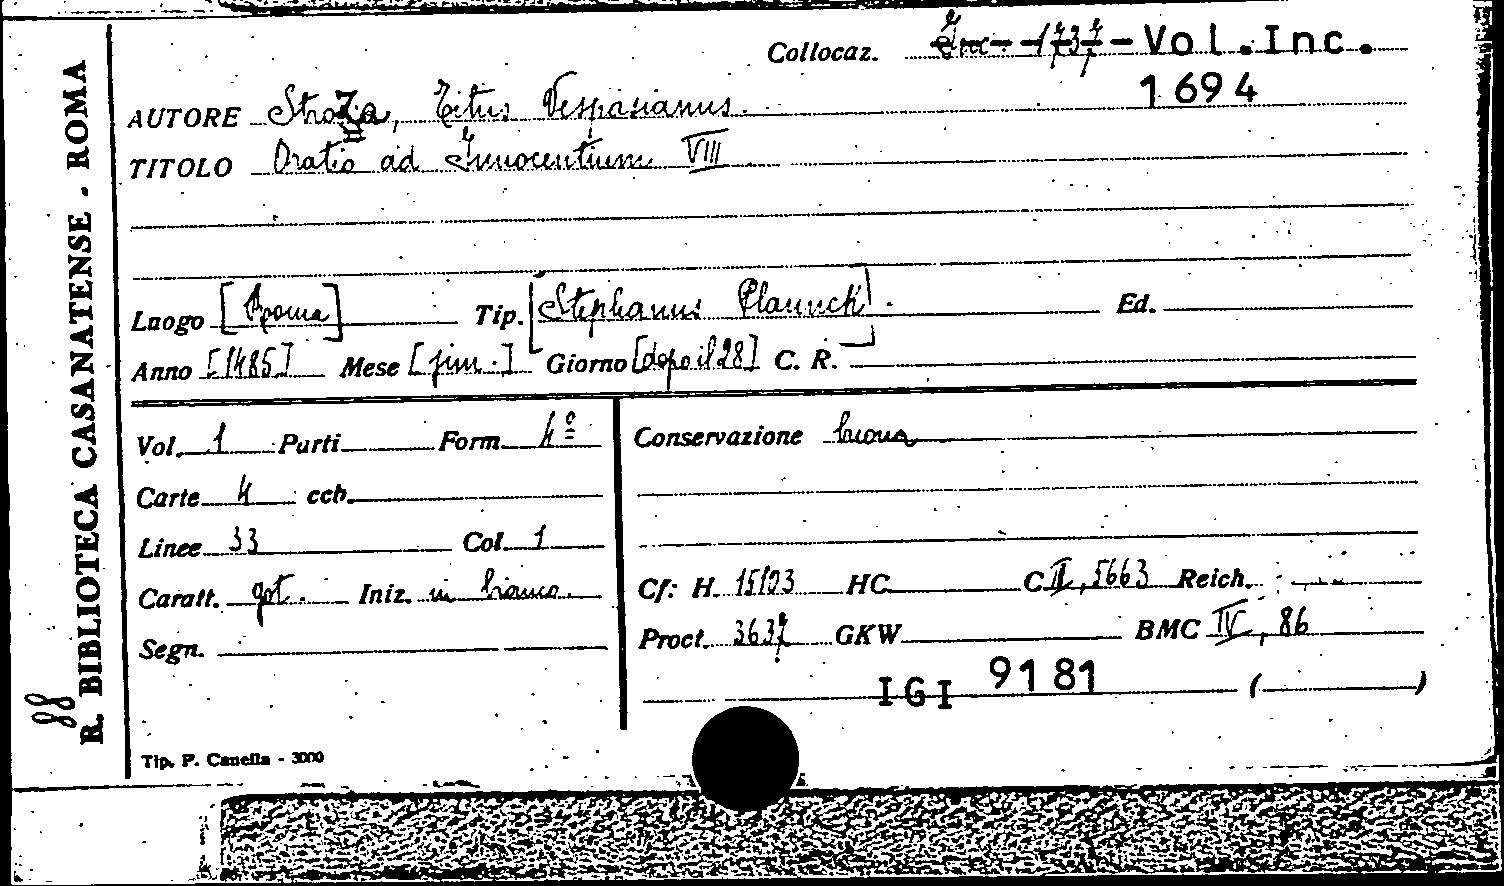 Collocaz. Inc. 1737 - Vol. Inc.
1694
AUTORE Stroza, Titus Vespasianus.
TITOLO Oratio ad Innocentium VIII
Luogo [Roma] Tip. [Stephanus Plannck]. Ed.
Anno [1485] Mese [jun.] Giorno [dopo il 28] C. R.
Vol. 1 Parti Form. 4º
Carte 4 ccb.
Linee 33 Col. 1
Caratt. got. Iniz. in bianco.
Segn.
Conservazione buona
Cf: H. 15103 HC C II, 5663 Reich.
Proct. 3637 GKW BMC IV, 86
IGI 9181 ( )
Tip. P. Canella - 3000
R. BIBLIOTECA CASANATENSE - ROMA
88